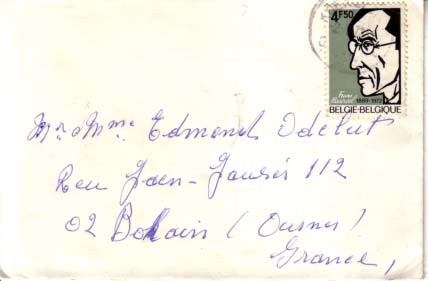 4F50
Frans Masereel
1889-1972
BELGIE-BELGIQUE
Mr & Mme Edmond Odelut
Reu Jaen-Jaurés 112
02 Bohain (Ousnes)
France,